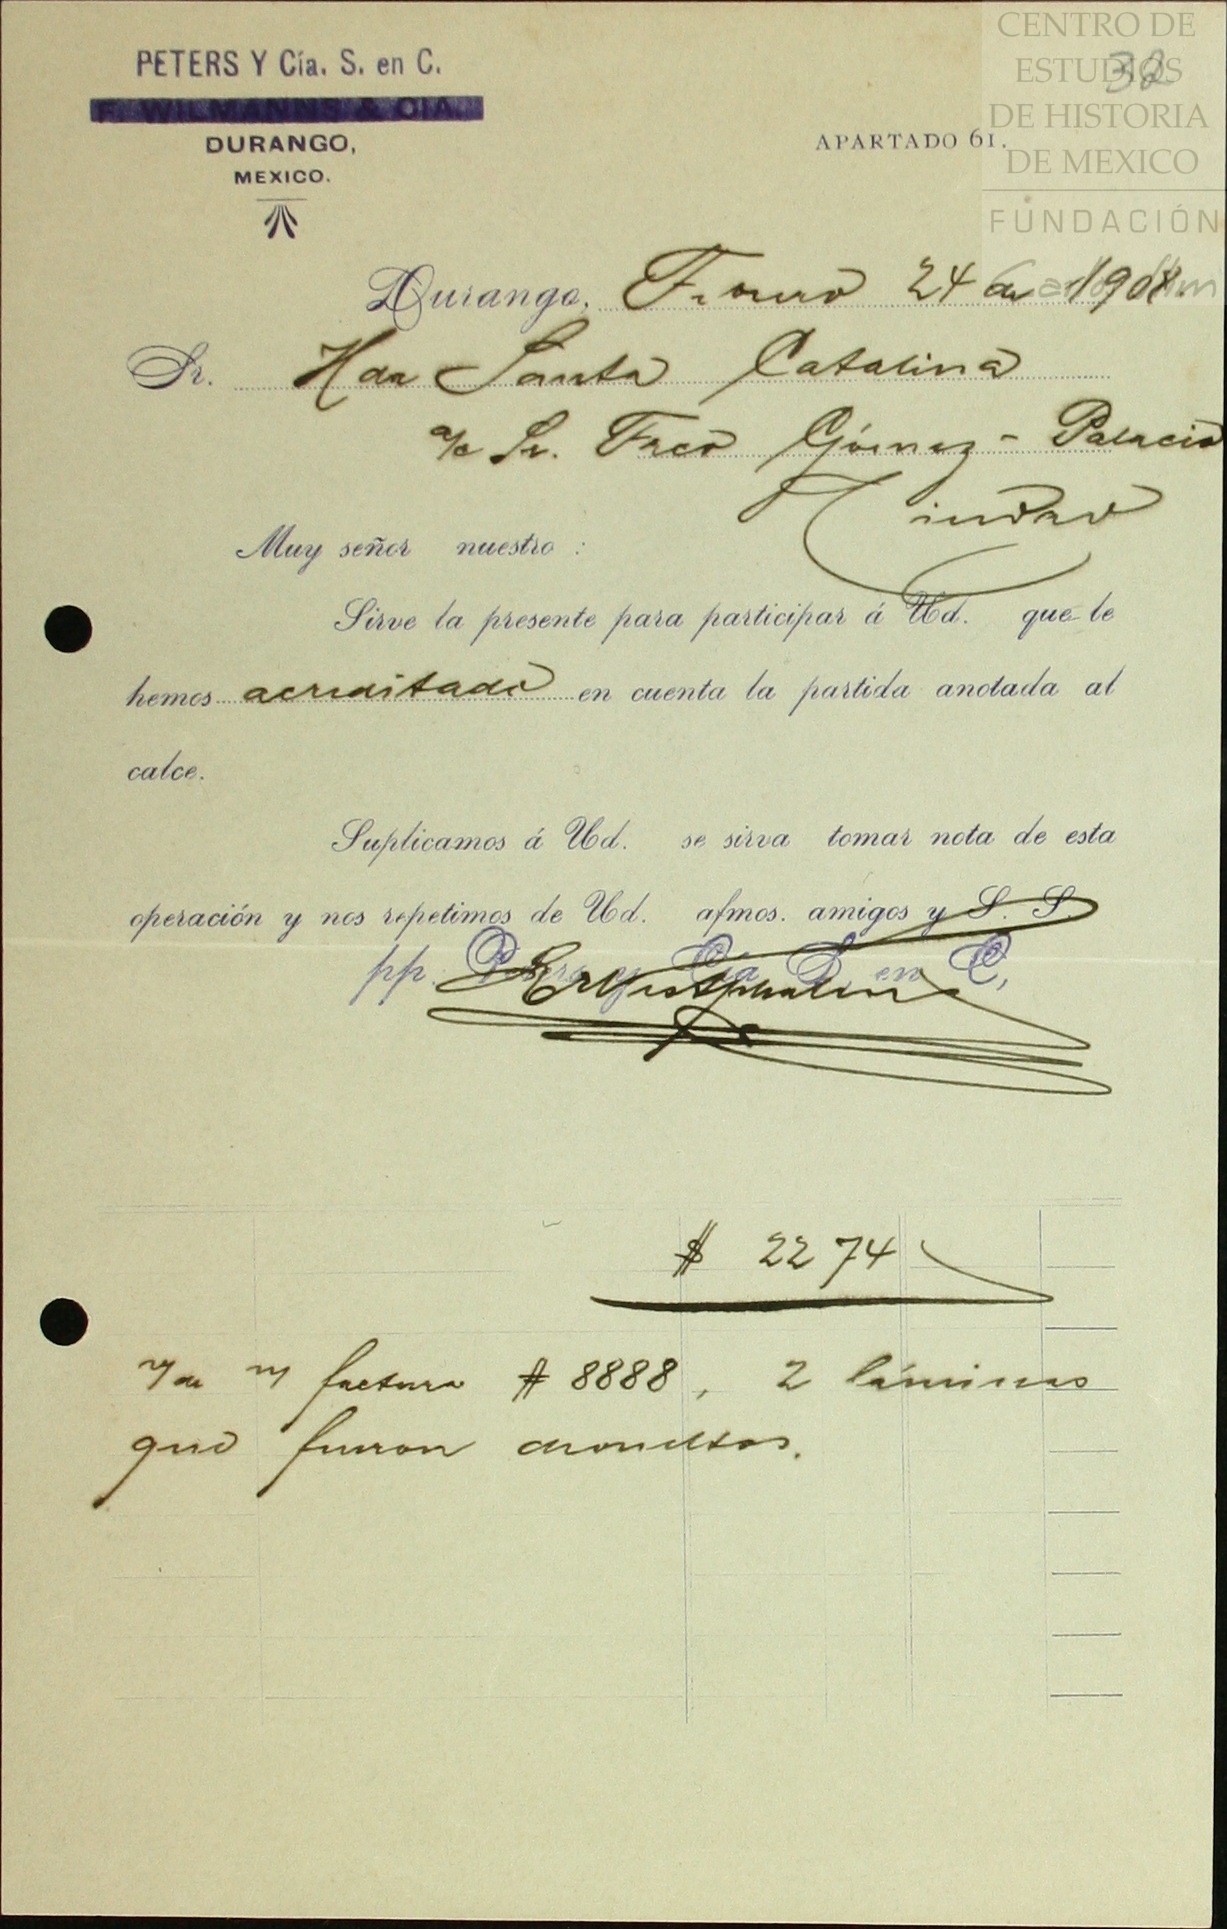 PETERS Y Cía. S. en C.
F. WILMANNS & CIA.
DURANGO,
MEXICO.
APARTADO 61.
CENTRO DE
ESTUDIOS
DE HISTORIA
DE MEXICO
FUNDACIÓN
32
Durango, Febrero 24 de 1908.
Sr. Hda Santa Catalina
a/c Sr. Frco Gómez - Palacio
Ciudad
Muy señor nuestro :
Sirve la presente para participar á Ud. que le
hemos acreditado en cuenta la partida anotada al
calce.
Suplicamos á Ud. se sirva tomar nota de esta
operación y nos repetimos de Ud. afmos. amigos y S. S.
pp. Peters y Cía S. en C,
$ 22 74
factura # 8888, 2 láminas
que fueron devueltas.